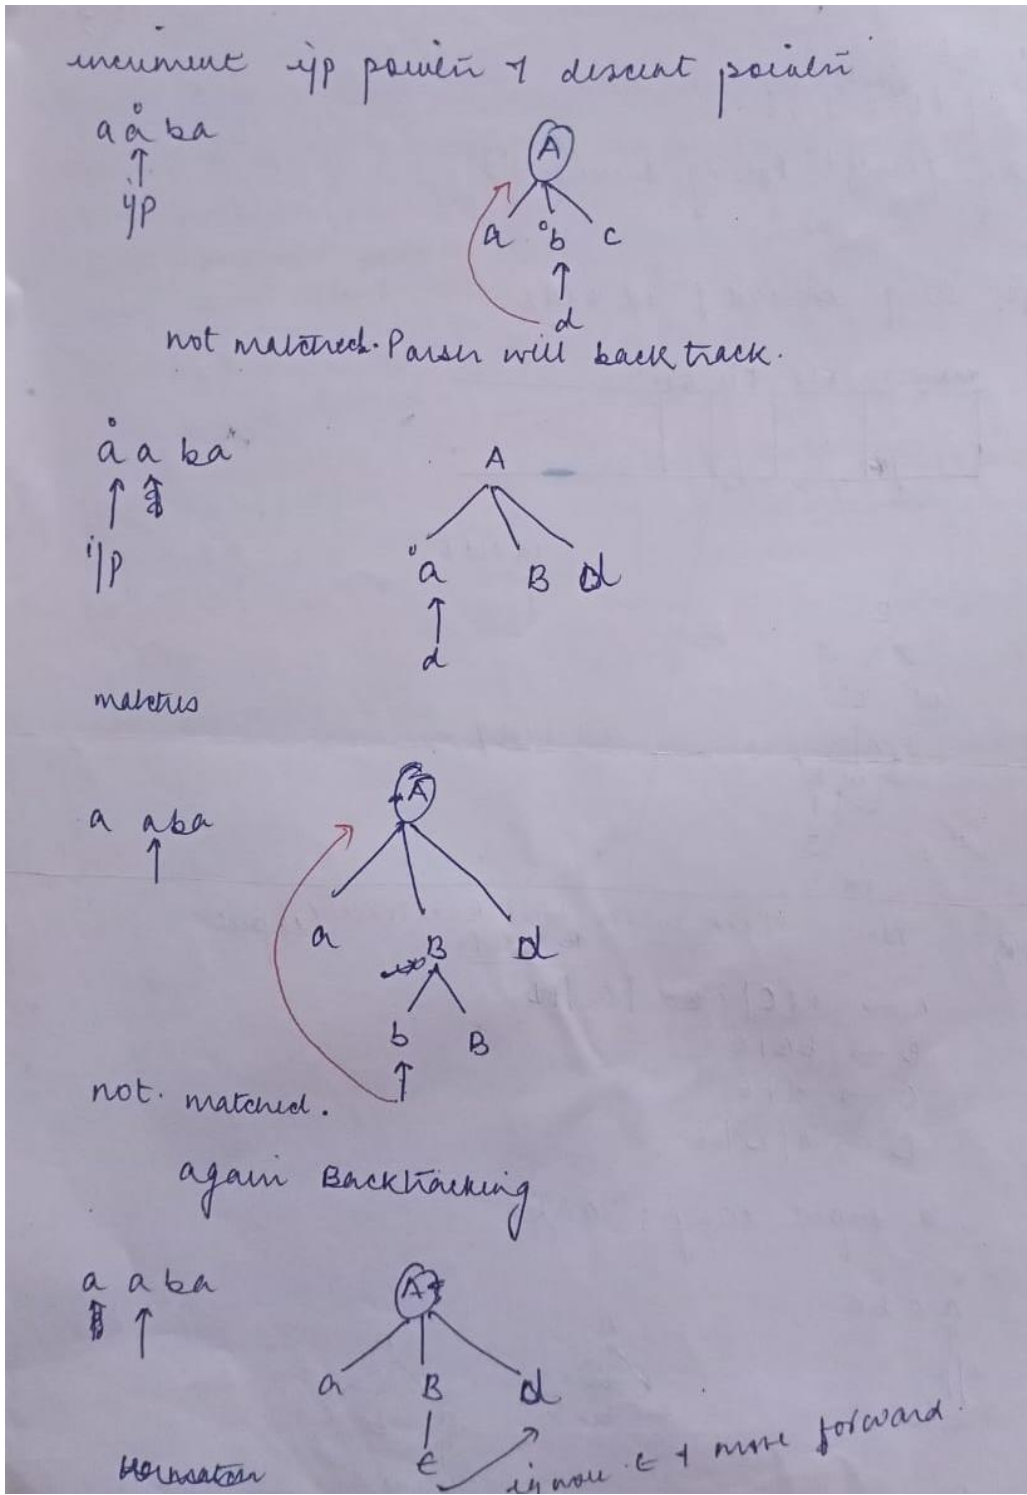 increment i/p pointer & descent pointer
a a ba
i/p
A
a b c
d
not matched. Parser will back track.
a a ba
i/p
A
a B d
d
matches
A
a aba
a B d
b B
not. matched.
again Backtracking
a a ba
A
a B d
ϵ
ignore ϵ & move forward.